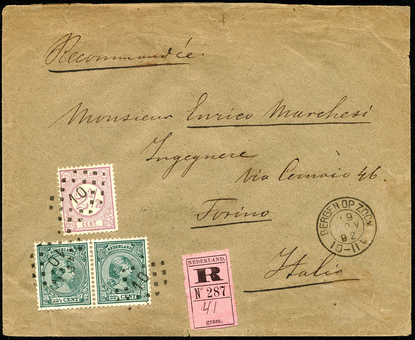 Recommandée.
Monsieur Enrico Marchesi
Ingegnere
Via Cernaia 46
Torino
Italia
BERGEN OP ZOOM
10-11
92
10
CENT
10
10
NEDERLAND
NEDERLAND
CENT
CENT
NEDERLAND.
R
No 287
41
gram.